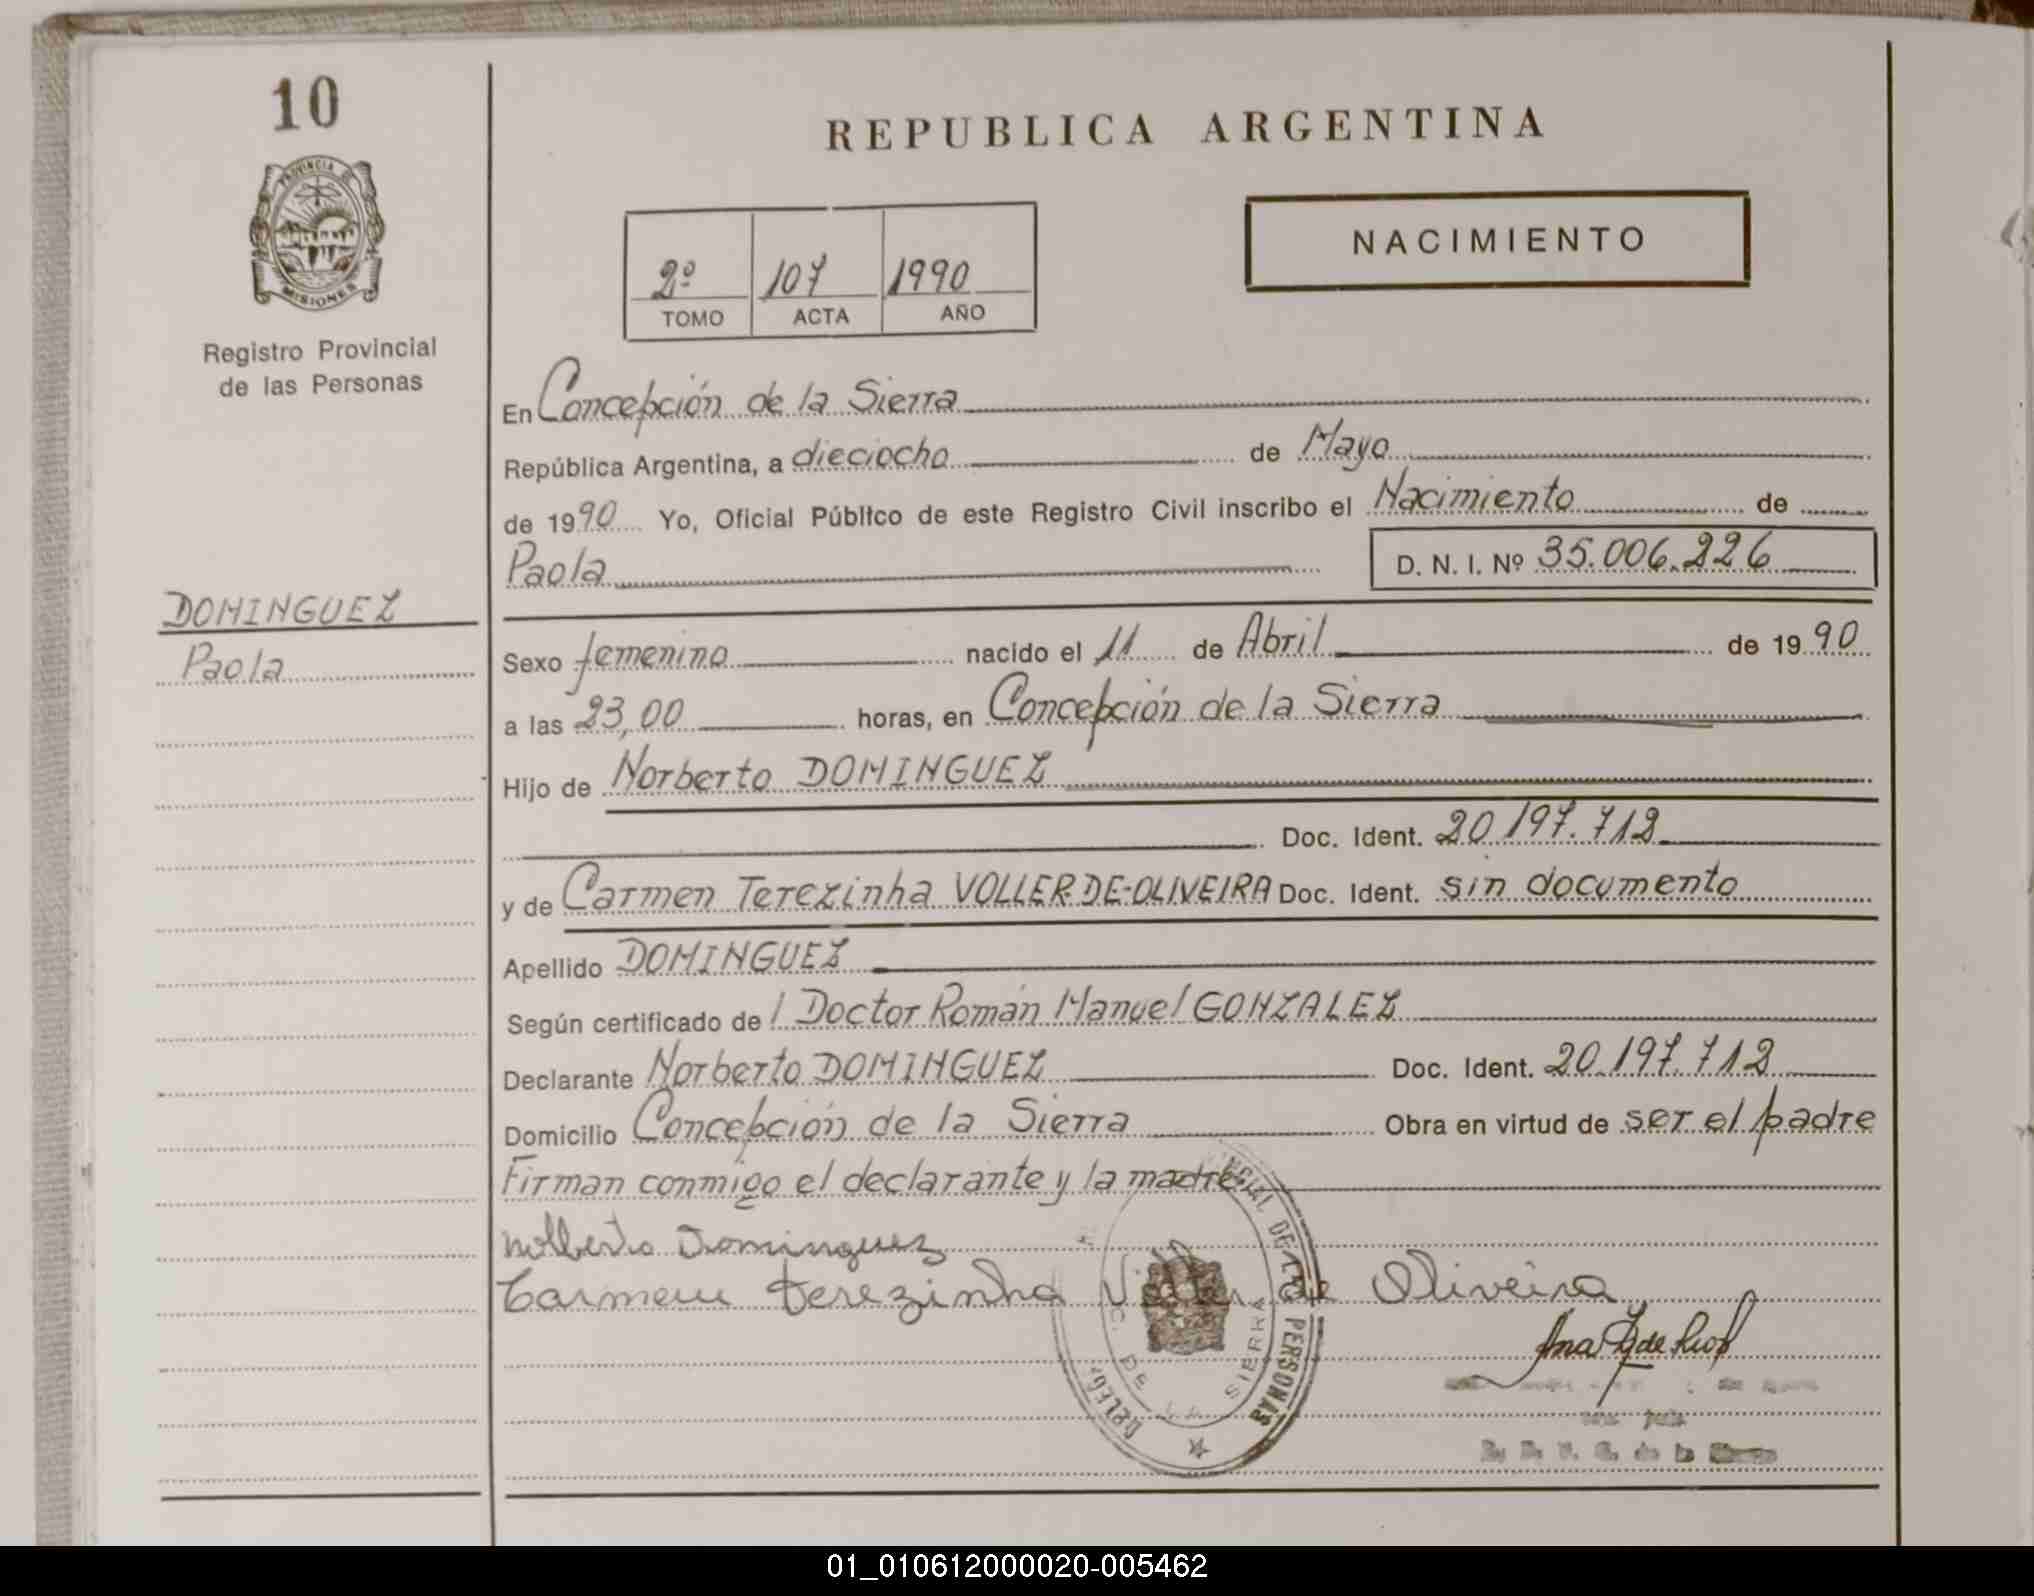 10
REPUBLICA ARGENTINA
PROVINCIA DE
MISIONES
Registro Provincial
de las Personas
NACIMIENTO
2º 107 1990
TOMO ACTA AÑO
En Concepción de la Sierra
República Argentina, a dieciocho de Mayo
de 1990 Yo, Oficial Público de este Registro Civil inscribo el Nacimiento de
Paola D. N. I. Nº 35.006.226
DOMINGUEZ
Paola
Sexo femenino nacido el 11 de Abril de 1990
a las 23,00 horas, en Concepción de la Sierra
Hijo de Norberto DOMINGUEZ
Doc. Ident. 20.197.712
y de Carmen Terezinha VOLLER-DE-OLIVEIRA Doc. Ident. sin documento
Apellido DOMINGUEZ
Según certificado del Doctor Román Manuel GONZALEZ
Declarante Norberto DOMINGUEZ Doc. Ident. 20.197.712
Domicilio Concepción de la Sierra Obra en virtud de ser el padre
Firman conmigo el declarante y la madre
Norberto Dominguez
Carmem terezinha Voller de Oliveira
DE LAS PERSONAS
C. DE LA SIERRA
01_010612000020-005462